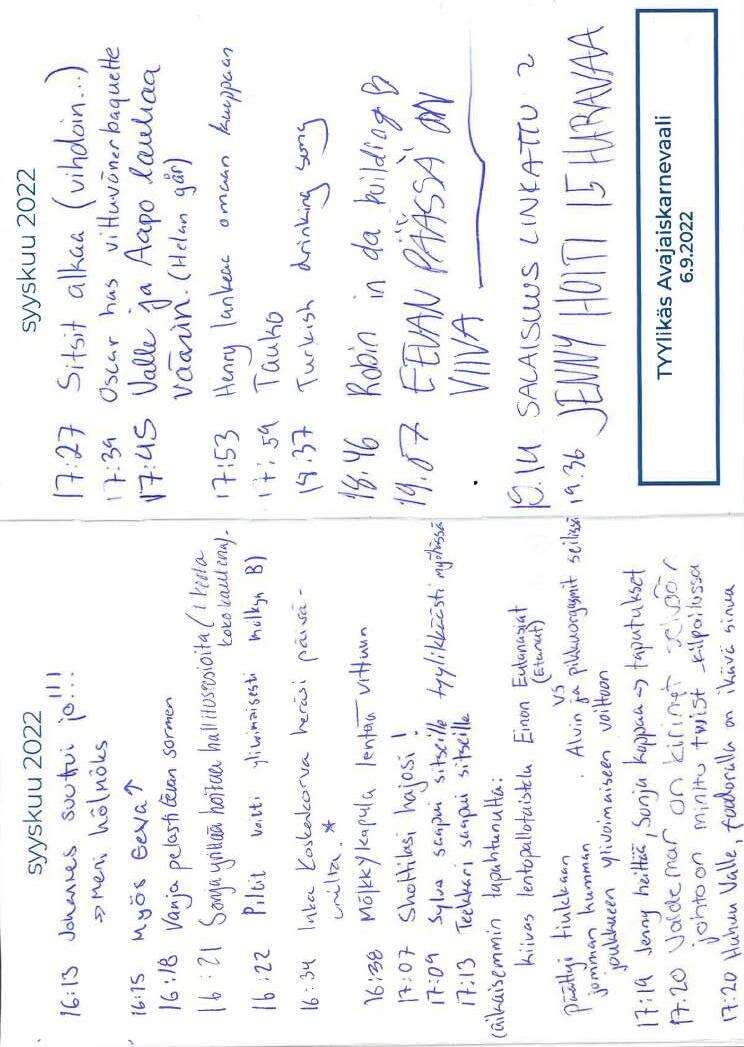 syyskuu 2022
16:13 Johannes suuttui jo!!!
→ meni hölnöks
16:15 Myös Eeva ↑
16:18 Vanja pelasti Eevan sormen
16:21 Sonja yrittää hoitaa hallitusasioita (1 keola
koko kaulena).
16:22 Piltit voitti ylivoimaisesti mölkyn B)
16:34 Inka Koskakorva heräsi päivä-
unilta. *
16:38 Mölkkykapula lentää vittuun
17:07 Shottilasi hajosi!
17:09 Sylva saapui sitseille tyylikkäästi myöhässä
17:13 Teekkari saapui sitseille
(aikaisemmin tapahtunutta:
Kiivas lentopallotaistelu Einon Eutanasiat
(Etanat)
vs
Alvin ja pikkuorgasmit seilissä
Päättyi tiukkaan
jomman humman
joukkueen ylivoimaiseen voittoon
17:19 Jenny heittää, Sonja koppaa → taputukset
17:20 Valdemar on kirinyt selvään
johtoon minttu twist -kilpailussa
17:20 Huhuu Valle, foodoralla on ikävä sinua
syyskuu 2022
17:27 Sitsit alkaa (vihdoin...)
17:34 Oscar has vittuvåner baguette
17:45 Valle ja Aapo laulaa
väärin. (Helan går)
17:53 Henry lankeaa omaan kuoppaan
17:59 Tauko
18:37 Turkish drinking song
18:46 Robin in da building B
19.07 EEVAN PÄÄSSÄ ON
VIIVA
19.14 SALAISUUS LINKATTU 2
19:36 JENNY HOITI 15 HARAVAA
TYYlikäs Avajaiskarnevaali
6.9.2022